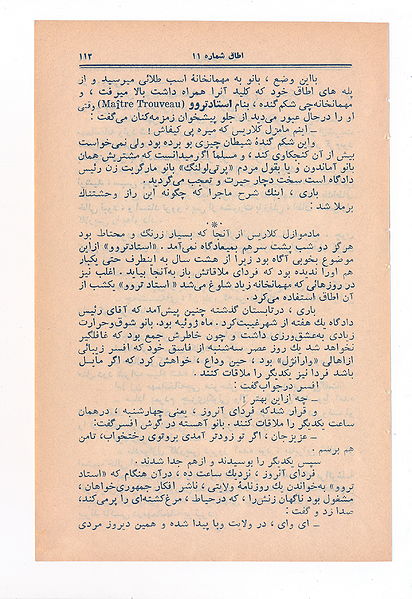 اطاق شماره ۱۱ ۱۱۳
بااین وضع ، بانو به مهمانخانهٔ اسب طلائی میرسید و از
پله های اطاق خود که کلید آنرا همراه داشت بالا میرفت ، و
مهمانخانه‌چی شکم‌گنده ، بنام استادتروو (Maître Trouveau) وقتی
او را درحال عبور می‌دید از جلو پیشخوان زمزمه‌کنان می‌گفت :
ـ اینم مامزل کلاریس که میره پی کیفاش !
واین شکم گندهٔ شیطان چیزی بو برده بود ولی نمی‌خواست
بیش از آن کنجکاوی کند ، و مسلماً اگر میدانست که مشتریش همان
بانو آماندون و یا بقول مردم «پرتی‌لولنگ» بانو مارگریت زن رئیس
دادگاه است سخت دچار حیرت و تعجب می‌گردید .
باری ، اینك شرح ماجرا که چگونه این راز وحشتناك
برملا شد :
*
مادموازل کلاریس از آنجا که بسیار زرنگ و محتاط بود
هرگز دو شب پشت سرهم بمیعادگاه نمی‌آمد . «استادتروو» ازاین
موضوع بخوبی آگاه بود زیرا از هشت سال به اینطرف حتی یکبار
هم اورا ندیده بود که فردای ملاقاتش باز به‌آنجا بیاید . اغلب نیز
در روزهائی که مهمانخانه زیاد شلوغ می‌شد «استاد تروو» یکشب از
آن اطاق استفاده می‌کرد .
باری ، درتابستان گذشته چنین پیش‌آمد که آقای رئیس
دادگاه یك هفته از شهرغیبت‌کرد . ماه ژوئیه بود . بانو شوق‌وحرارت
زیادی به‌عشق‌ورزی داشت و چون خاطرش جمع بود که غافلگیر
نخواهد شد یك روز عصر سه‌شنبه از فاسق خود که افسر زیبائی
ازاهالی «وارانژل» بود ، حین وداع ، خواهش کرد که اگر مایل
باشد فردا نیز یکدیگر را ملاقات کنند .
افسر درجواب‌گفت :
ـ چه ازاین بهتر !
و قرار شدکه فردای آنروز ، یعنی چهارشنبه ، درهمان
ساعت یکدیگر را ملاقات کنند . بانو آهسته در گوش افسرگفت :
ـ عزیزجان ; اگر تو زودتر آمدی بروتوی رختخواب ، تامن
هم برسم .
سپس یکدیگر را بوسیدند و ازهم جدا شدند .
فردای آنروز ، نزدیك ساعت ده ، درآن هنگام که «استاد
تروو» به‌خواندن یك روزنامهٔ ولایتی ، ناشر افکار جمهوری‌خواهان ،
مشغول بود ناگهان زنش‌را ، که درحیاط ، مرغ‌کشته‌ای را پرمی‌کند ،
صدا زد و گفت :
ـ ای وای ، در ولایت وبا پیدا شده و همین دیروز مردی